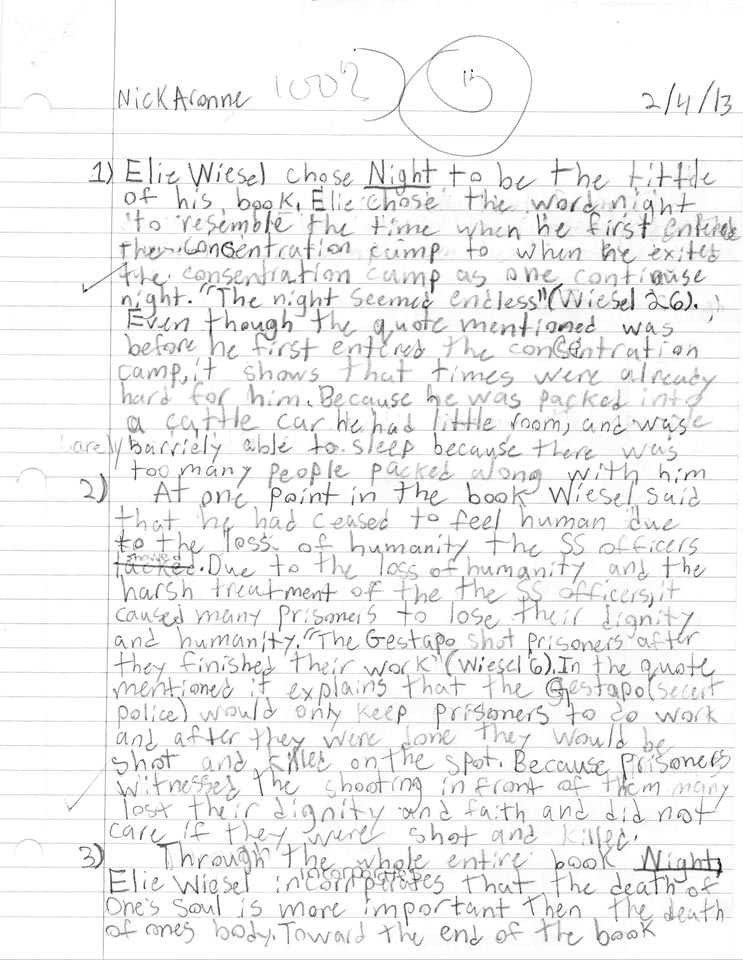 Nick Aronne 100% 2/4/13
1) Elie Wiesel chose Night to be the tittle
of his book. Elie chose the word night
to resemble the time when he first entered
the concentration camp to when he exited
the consentration camp as one continuse
night. "The night seemed endless" (Wiesel 26).
Even though the quote mentioned was
before he first entered the concentration
camp, it shows that times were already
hard for him. Because he was packed into
a cattle car he had little room, and was
barely barriely able to sleep because there was
too many people packed along with him
2) At one point in the book Wiesel said
that he had ceased to feel human due
to the loss of humanity the SS officers
showed
lacked. Due to the loss of humanity and the
harsh treatment of the the SS officers, it
caused many prisoners to lose their dignity
and humanity. "The Gestapo shot prisoners after
they finished their work" (Wiesel 6). In the quote
mentioned it explains that the Gestapo (secert
police) would only keep prisoners to do work
and after they were done they would be
shot and killed on the spot. Because prisoners
witnessed the shooting in front of them many
lost their dignity and faith and did not
care if they were shot and killed.
3) Through the whole entire book Night,
incorporates
Elie Wiesel that the death of
One's soul is more important then the death
of ones body. Toward the end of the book